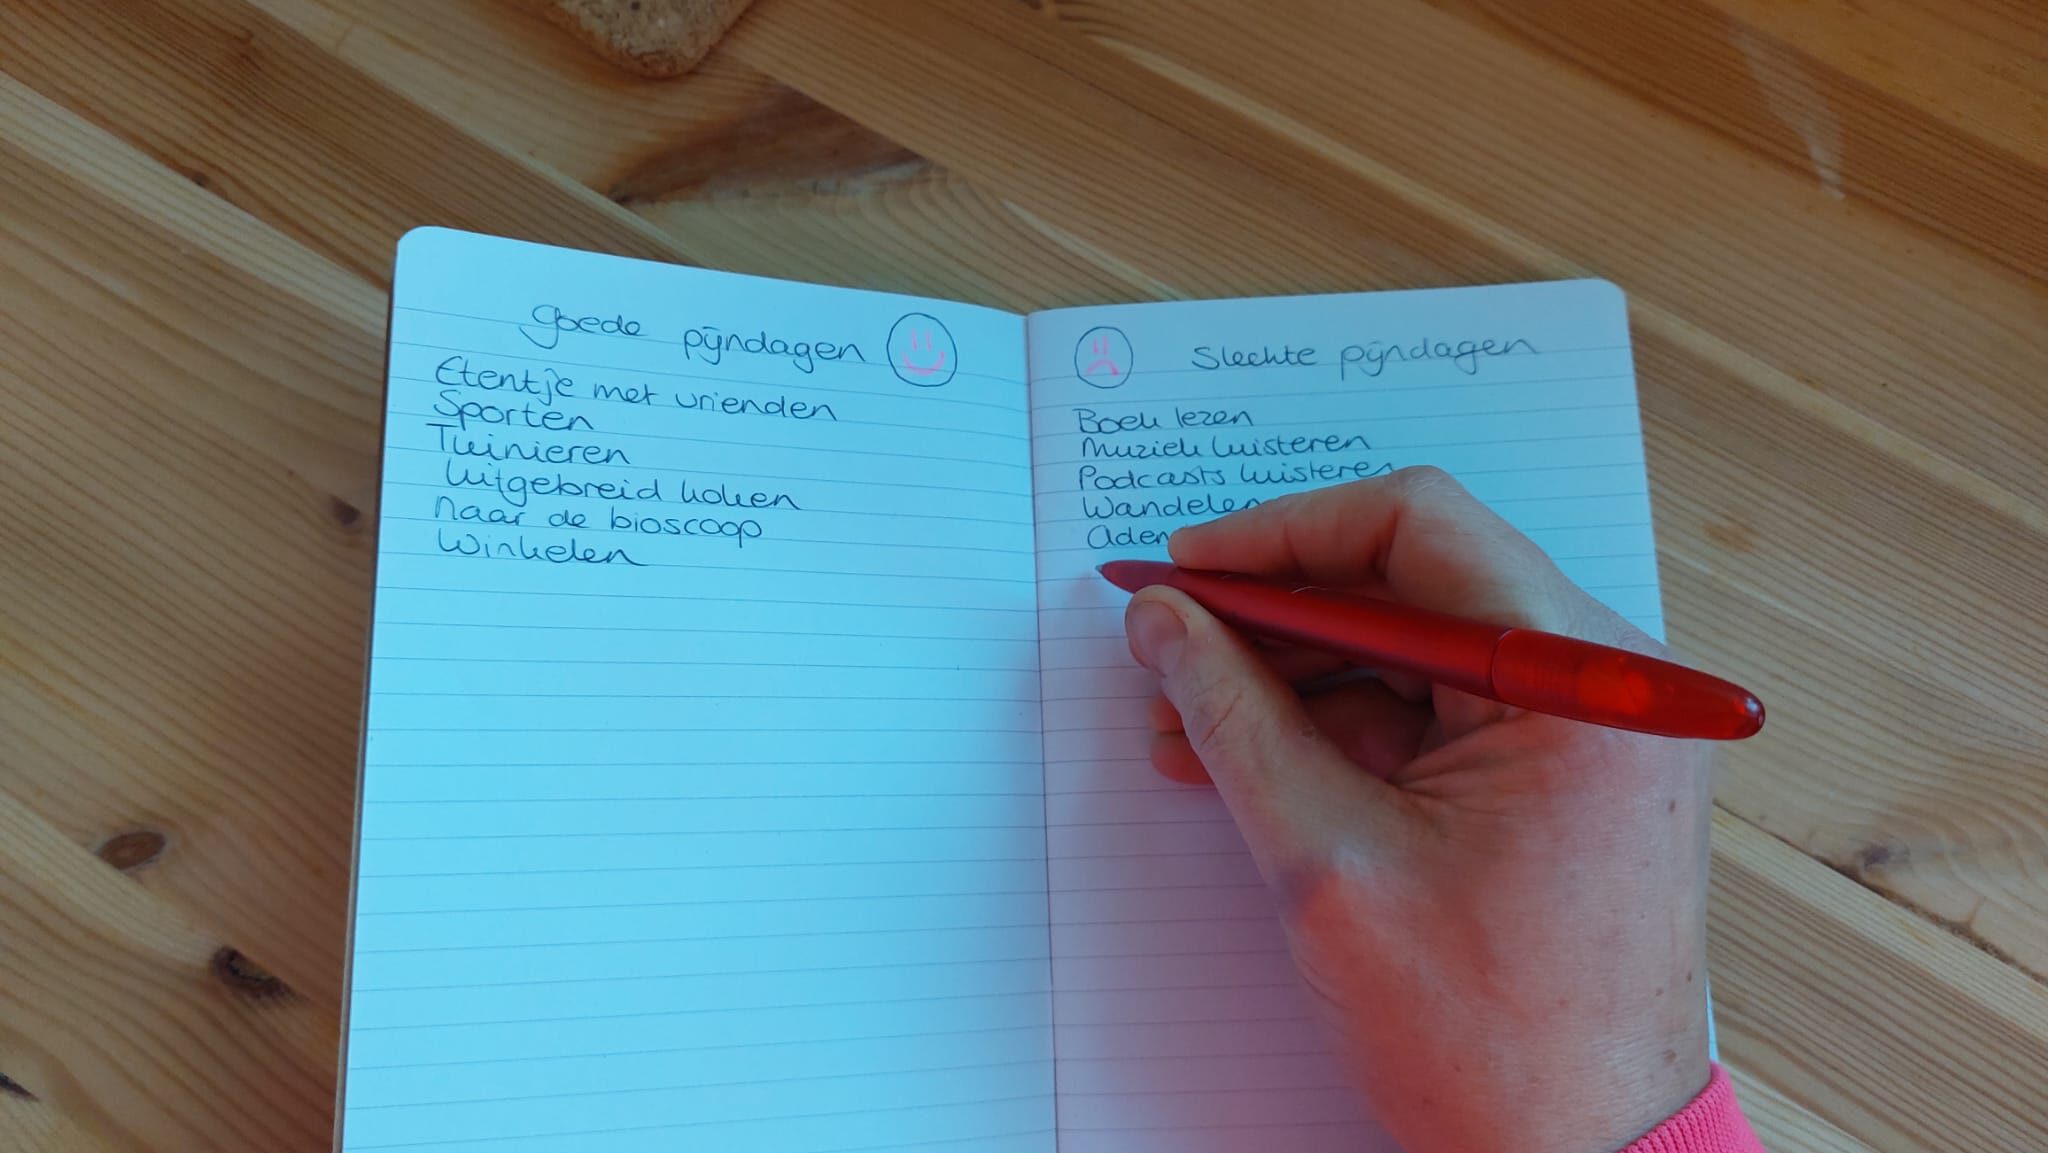 Goede pijndagen
Etentje met vrienden
Sporten
Tuinieren
Uitgebreid koken
Naar de bioscoop
Winkelen
Slechte pijndagen
Boek lezen
Muziek luisteren
Podcasts luisteren
Wandelen